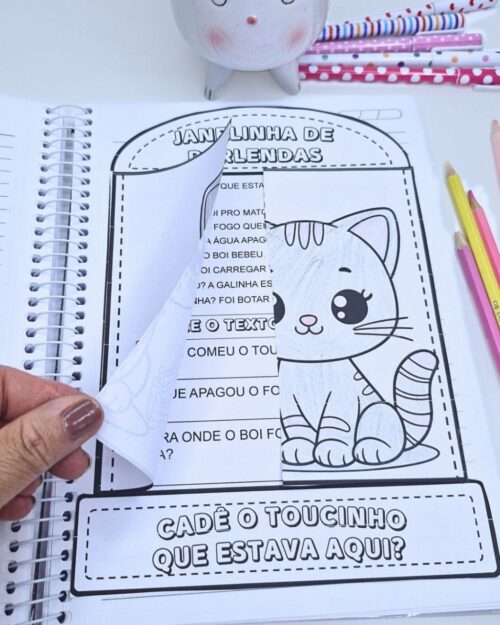 JANELINHA DE
PARLENDAS
QUE ESTA
OI PRO MATO
FOGO QUE
A ÁGUA APAG
O BOI BEBEU.
OI CARREGAR
O? A GALINHA ES
NHA? FOI BOTAR
E O TEXTO
COMEU O TOU
UE APAGOU O FO
RA ONDE O BOI FO
A?
CADÊ O TOUCINHO
QUE ESTAVA AQUI?